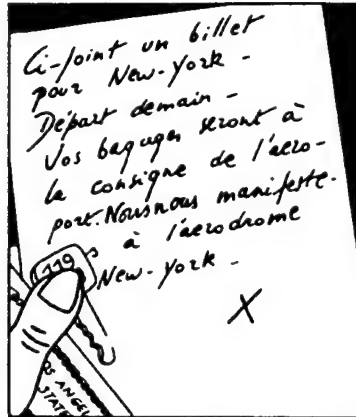 Ci-Joint un billet
pour New-York -
Départ demain -
Vos bagages seront à
la consigne de l'aéro-
port. Nous nous manifeste-
à l'aérodrome
New-York -
X
119
OS ANGEL
STATE